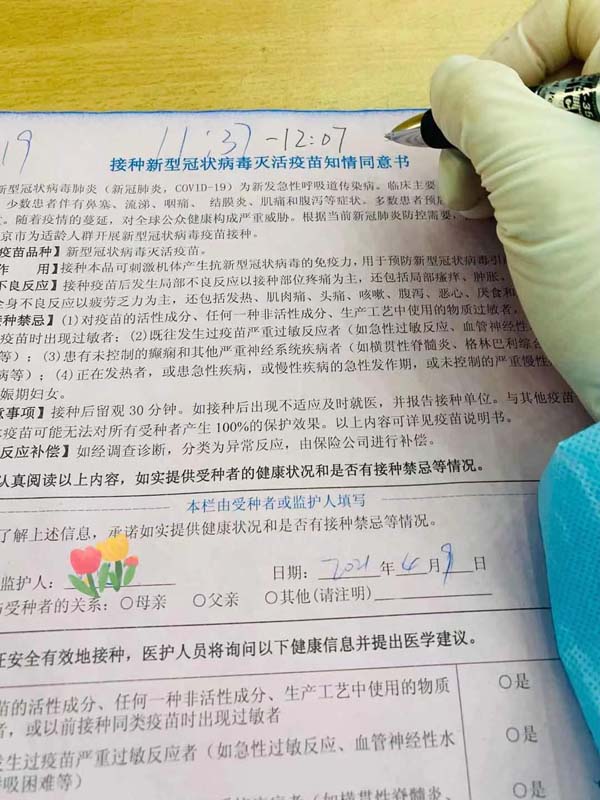 19 11:37-12:07
接种新型冠状病毒灭活疫苗知情同意书
新型冠状病毒肺炎（新冠肺炎，COVID-19）为新发急性呼吸道传染病。临床主要
少数患者伴有鼻塞、流涕、咽痛、结膜炎、肌痛和腹泻等症状。多数患者预
。随着疫情的蔓延，对全球公众健康构成严重威胁。根据当前新冠肺炎防控需要，
京市为适龄人群开展新型冠状病毒疫苗接种。
疫苗品种】新型冠状病毒灭活疫苗。
作 用】接种本品可刺激机体产生抗新型冠状病毒的免疫力，用于预防新型冠状病毒引
不良反应】接种疫苗后发生局部不良反应以接种部位疼痛为主，还包括局部瘙痒、肿胀、
全身不良反应以疲劳乏力为主，还包括发热、肌肉痛、头痛、咳嗽、腹泻、恶心、厌食和
接种禁忌】(1)对疫苗的活性成分、任何一种非活性成分、生产工艺中使用的物质过敏者，
疫苗时出现过敏者；(2)既往发生过疫苗严重过敏反应者（如急性过敏反应、血管神经性
等）；(3)患有未控制的癫痫和其他严重神经系统疾病者（如横贯性脊髓炎、格林巴利综合
病等）；(4)正在发热者，或患急性疾病，或慢性疾病的急性发作期，或未控制的严重慢性
娠期妇女。
意事项】接种后留观30分钟。如接种后出现不适应及时就医，并报告接种单位。与其他疫苗
疫苗可能无法对所有受种者产生100%的保护效果。以上内容可详见疫苗说明书。
反应补偿】如经调查诊断，分类为异常反应，由保险公司进行补偿。
认真阅读以上内容，如实提供受种者的健康状况和是否有接种禁忌等情况。
本栏由受种者或监护人填写
了解上述信息，承诺如实提供健康状况和是否有接种禁忌等情况。
监护人： 日期：2021年4月9日
与受种者的关系：○母亲 ○父亲 ○其他(请注明)
证安全有效地接种，医护人员将询问以下健康信息并提出医学建议。
苗的活性成分、任何一种非活性成分、生产工艺中使用的物质 ○是
者，或以前接种同类疫苗时出现过敏者
发生过疫苗严重过敏反应者（如急性过敏反应、血管神经性水 ○是
呼吸困难等）